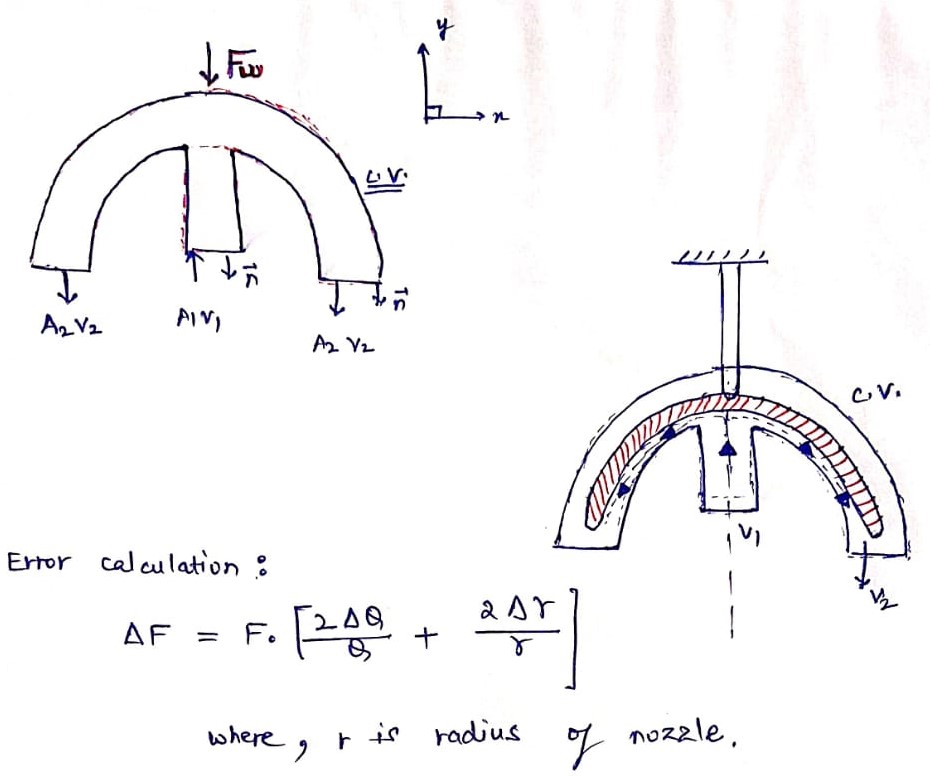 y
Fw
x
C.V.
n⃗
n⃗
A2 V2
A1 V1
A2 V2
C.V.
V1
V2
Error calculation :
ΔF = F. [ 2ΔQ/Q + 2Δr/r ]
where, r is radius of nozzle.